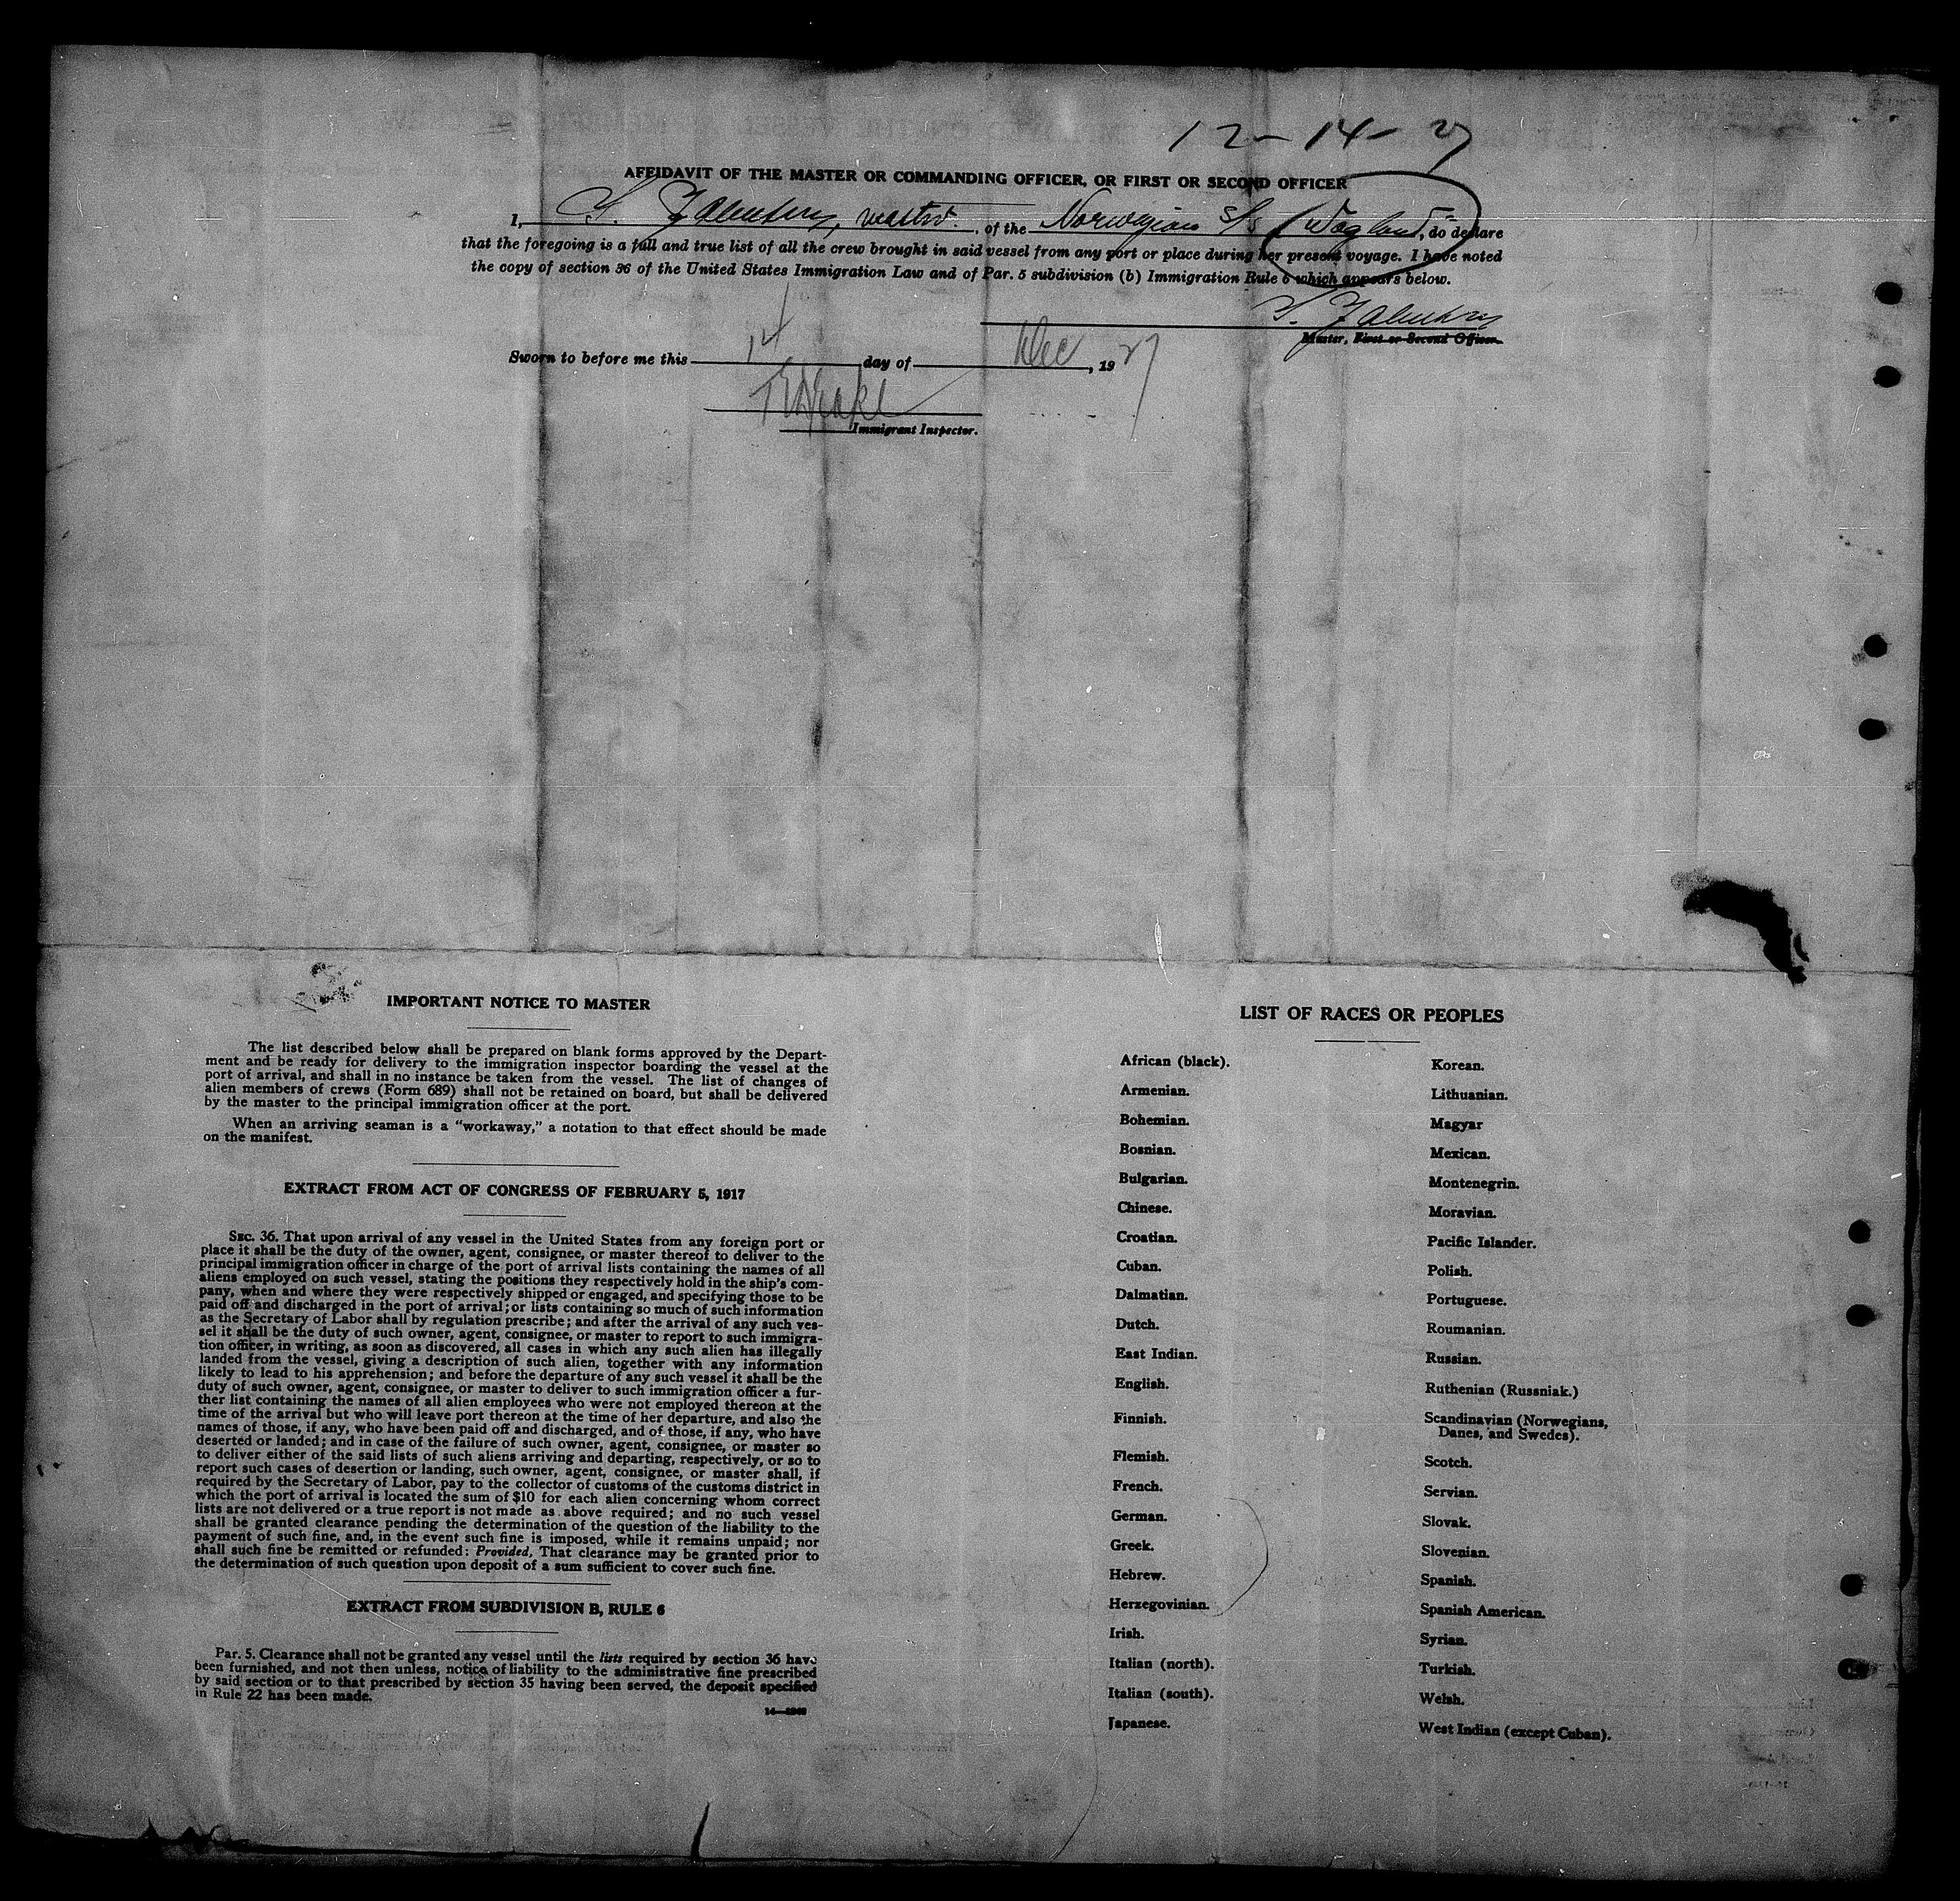 12-14-27
AFFIDAVIT OF THE MASTER OR COMMANDING OFFICER, OR FIRST OR SECOND OFFICER
I, S. master, of the Norwegian S/S "Wagland", do declare
that the foregoing is a full and true list of all the crew brought in said vessel from any port or place during her present voyage. I have noted
the copy of section 36 of the United States Immigration Law and of Par. 5 subdivision (b) Immigration Rule 6 which appears below.
S.
Master, First or Second Officer.
Sworn to before me this 14 day of Dec, 1927
Drake
Immigrant Inspector.
IMPORTANT NOTICE TO MASTER
The list described below shall be prepared on blank forms approved by the Depart-
ment and be ready for delivery to the immigration inspector boarding the vessel at the
port of arrival, and shall in no instance be taken from the vessel. The list of changes of
alien members of crews (Form 689) shall not be retained on board, but shall be delivered
by the master to the principal immigration officer at the port.
When an arriving seaman is a "workaway," a notation to that effect should be made
on the manifest.
EXTRACT FROM ACT OF CONGRESS OF FEBRUARY 5, 1917
SEC. 36. That upon arrival of any vessel in the United States from any foreign port or
place it shall be the duty of the owner, agent, consignee, or master thereof to deliver to the
principal immigration officer in charge of the port of arrival lists containing the names of all
aliens employed on such vessel, stating the positions they respectively hold in the ship's com-
pany, when and where they were respectively shipped or engaged, and specifying those to be
paid off and discharged in the port of arrival; or lists containing so much of such information
as the Secretary of Labor shall by regulation prescribe; and after the arrival of any such ves-
sel it shall be the duty of such owner, agent, consignee, or master to report to such immigra-
tion officer, in writing, as soon as discovered, all cases in which any such alien has illegally
landed from the vessel, giving a description of such alien, together with any information
likely to lead to his apprehension; and before the departure of any such vessel it shall be the
duty of such owner, agent, consignee, or master to deliver to such immigration officer a fur-
ther list containing the names of all alien employees who were not employed thereon at the
time of the arrival but who will leave port thereon at the time of her departure, and also the
names of those, if any, who have been paid off and discharged, and of those, if any, who have
deserted or landed; and in case of the failure of such owner, agent, consignee, or master so
to deliver either of the said lists of such aliens arriving and departing, respectively, or so to
report such cases of desertion or landing, such owner, agent, consignee, or master shall, if
required by the Secretary of Labor, pay to the collector of customs of the customs district in
which the port of arrival is located the sum of $10 for each alien concerning whom correct
lists are not delivered or a true report is not made as above required; and no such vessel
shall be granted clearance pending the determination of the question of the liability to the
payment of such fine, and, in the event such fine is imposed, while it remains unpaid; nor
shall such fine be remitted or refunded: Provided, That clearance may be granted prior to
the determination of such question upon deposit of a sum sufficient to cover such fine.
EXTRACT FROM SUBDIVISION B, RULE 6
Par. 5. Clearance shall not be granted any vessel until the lists required by section 36 have
been furnished, and not then unless, notice of liability to the administrative fine prescribed
by said section or to that prescribed by section 35 having been served, the deposit specified
in Rule 22 has been made.
LIST OF RACES OR PEOPLES
African (black).
Armenian.
Bohemian.
Bosnian.
Bulgarian.
Chinese.
Croatian.
Cuban.
Dalmatian.
Dutch.
East Indian.
English.
Finnish.
Flemish.
French.
German.
Greek.
Hebrew.
Herzegovinian.
Irish.
Italian (north).
Italian (south).
Japanese.
Korean.
Lithuanian.
Magyar
Mexican.
Montenegrin.
Moravian.
Pacific Islander.
Polish.
Portuguese.
Roumanian.
Russian.
Ruthenian (Russniak.)
Scandinavian (Norwegians,
Danes, and Swedes).
Scotch.
Servian.
Slovak.
Slovenian.
Spanish.
Spanish American.
Syrian.
Turkish.
Welsh.
West Indian (except Cuban).